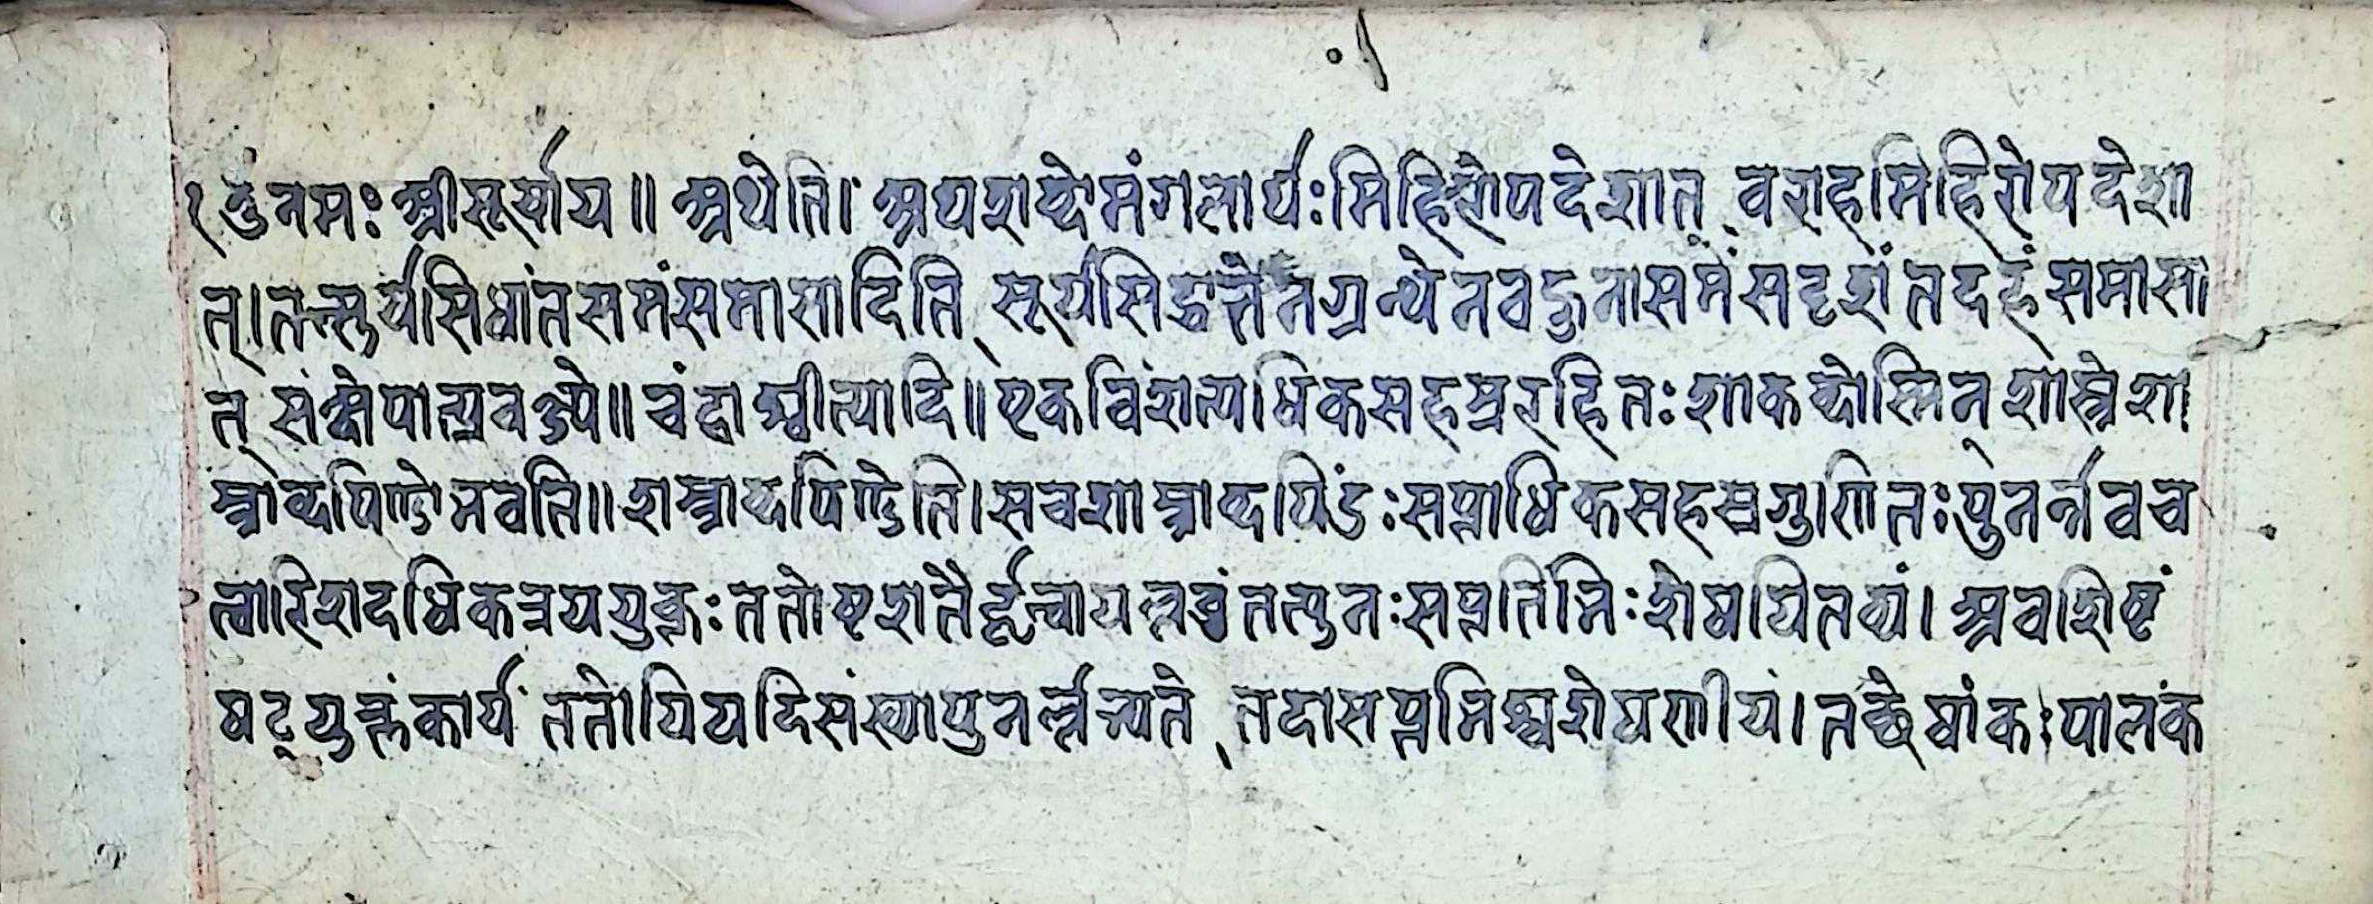 १ ॐ नमः श्रीसूर्याय ॥ अथेति । अथशब्दोमंगलार्थः मिहिरोपदेशात् वराहमिहिरोपदेशा
त् । तत्सूर्यसिधांतसमंसमासादिति सूर्यसिद्धान्तेनग्रन्थेनवस्तुनासमंसदृशंतदहंसमासा
त् संक्षेपात्प्रवक्ष्ये ॥ चंद्राश्वीत्यादि ॥ एकविंशत्यधिकसहस्ररहितः शाकब्दोस्मिन् शास्त्रेशा
स्त्राब्दपिण्डोभवति ॥ शास्त्राब्दपिण्डेति । सचशास्त्राब्दपिंडः सप्ताधिकसहस्रगुणितः पुनर्न्नवच
त्वारिंशदधिकत्रययुक्तः ततोष्टशतैर्हृत्वायल्लब्धंतत्पुनः सप्तभिर्निःशेषयितव्यं । अवशिष्टं
षट्युक्तंकार्यं ततोपियदिसंख्यापुनर्ल्लभ्यते तदासप्तभिश्चशेषणीयं । तच्छेषांकःपालकं